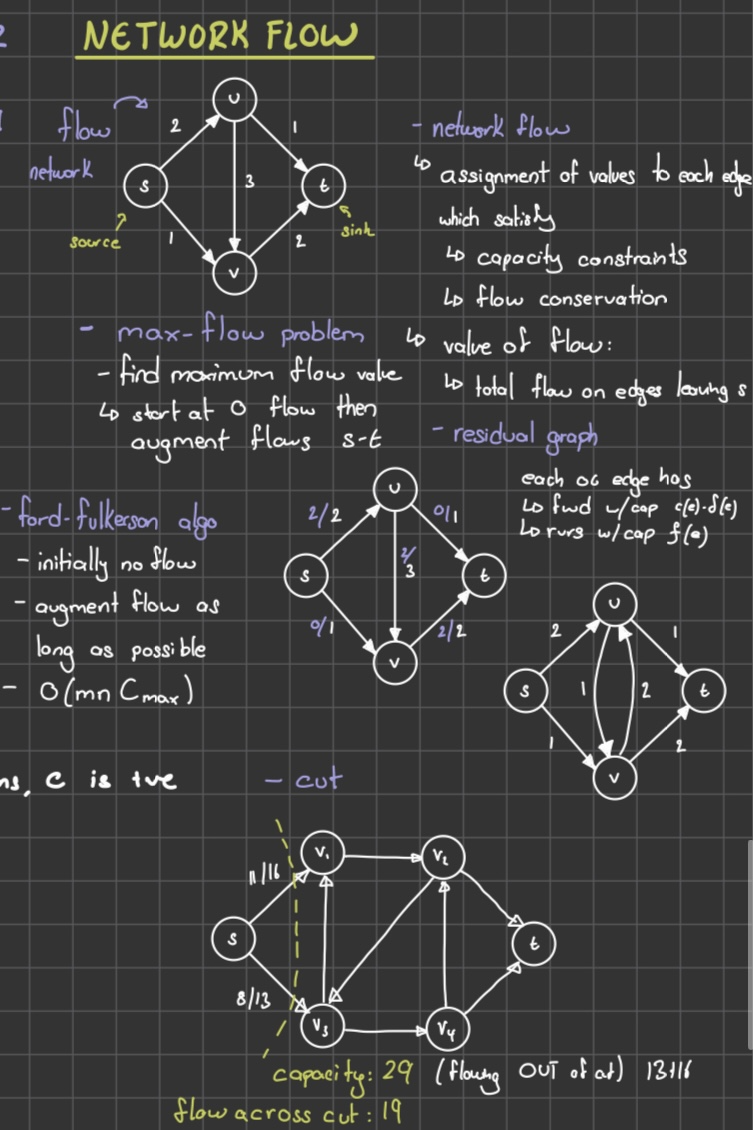 NETWORK FLOW
flow
network
2
1
u
s
t
3
source
sink
1
v
2
- network flow
↳ assignment of values to each edge
which satisfy
↳ capacity constraints
↳ flow conservation
↳ value of flow:
↳ total flow on edges leaving s
- max-flow problem
- find maximum flow value
↳ start at 0 flow then
augment flows s-t
- residual graph
each OG edge has
↳ fwd w/cap c(e)-f(e)
↳ rvrs w/cap f(e)
- ford-fulkerson algo
- initially no flow
- augment flow as
long as possible
- O(mn Cmax)
u
2/2
0/1
s
2/3
t
0/1
2/2
v
u
2
1
s
1
2
t
1
2
v
ns, C is tve
- cut
v1
v2
11/16
s
t
8/13
v3
v4
capacity: 29 (flowing OUT of
13+16
flow across cut: 19